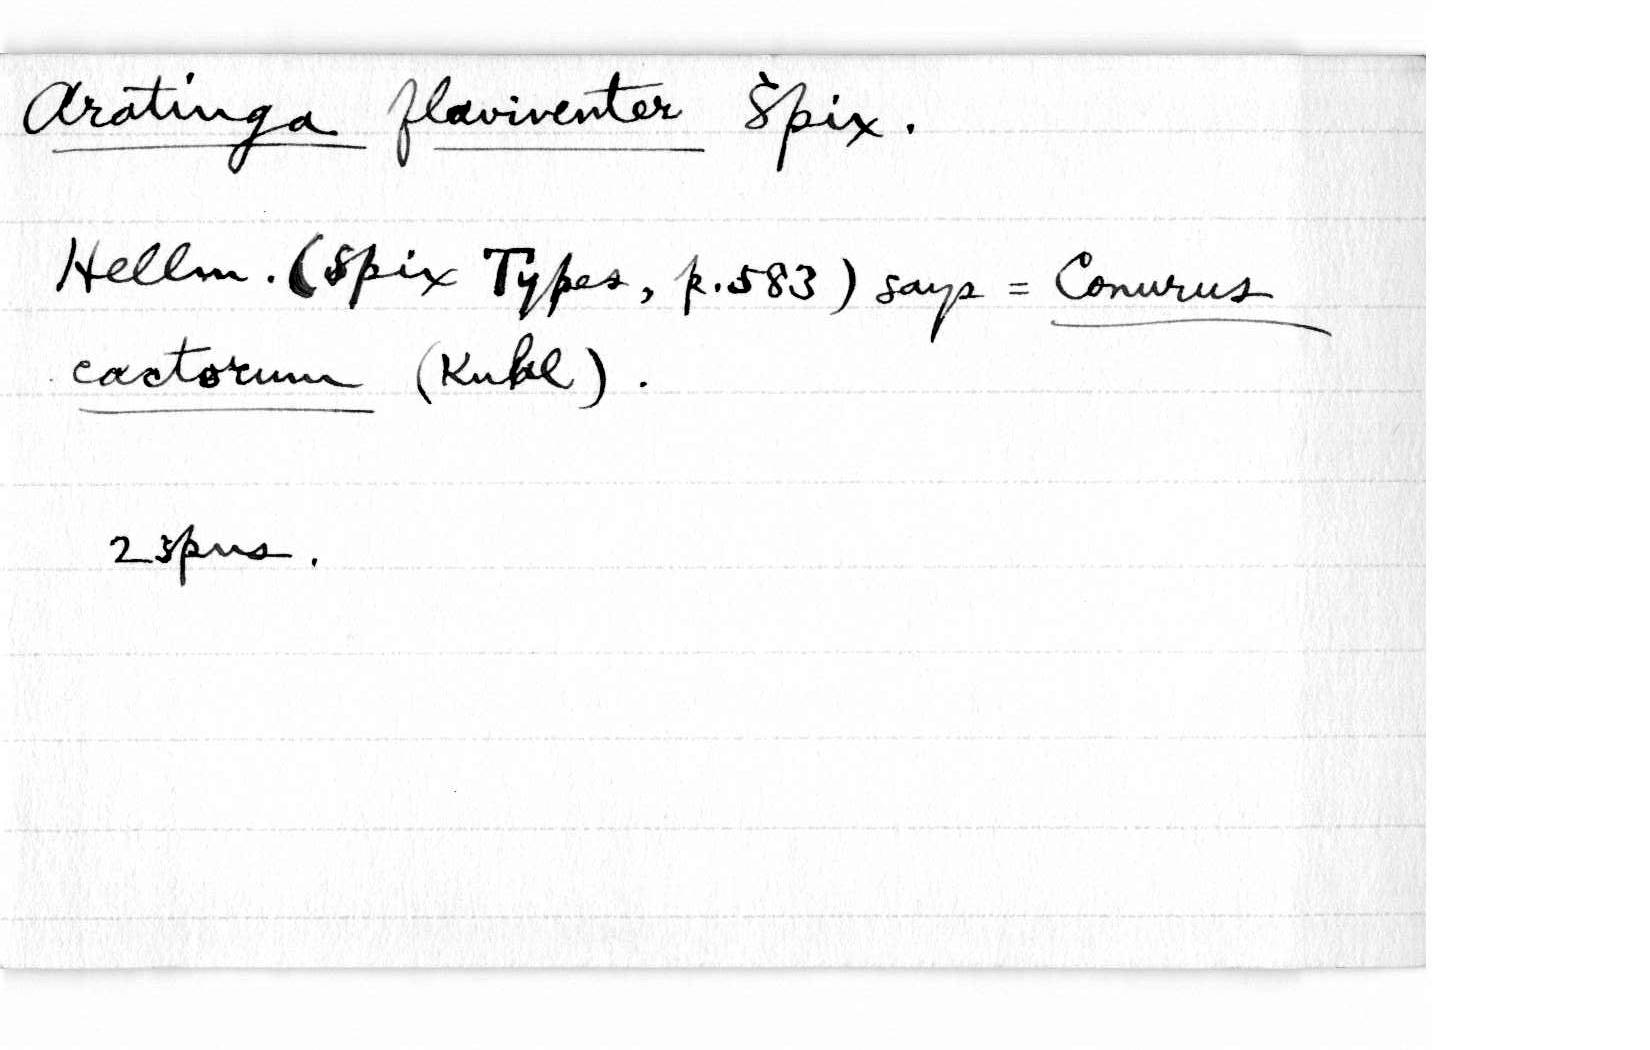 Aratinga flaviventer Spix.
Hellm. (Spix Types, p. 583) says = Conurus
cactorum (Kuhl).
2 spns.